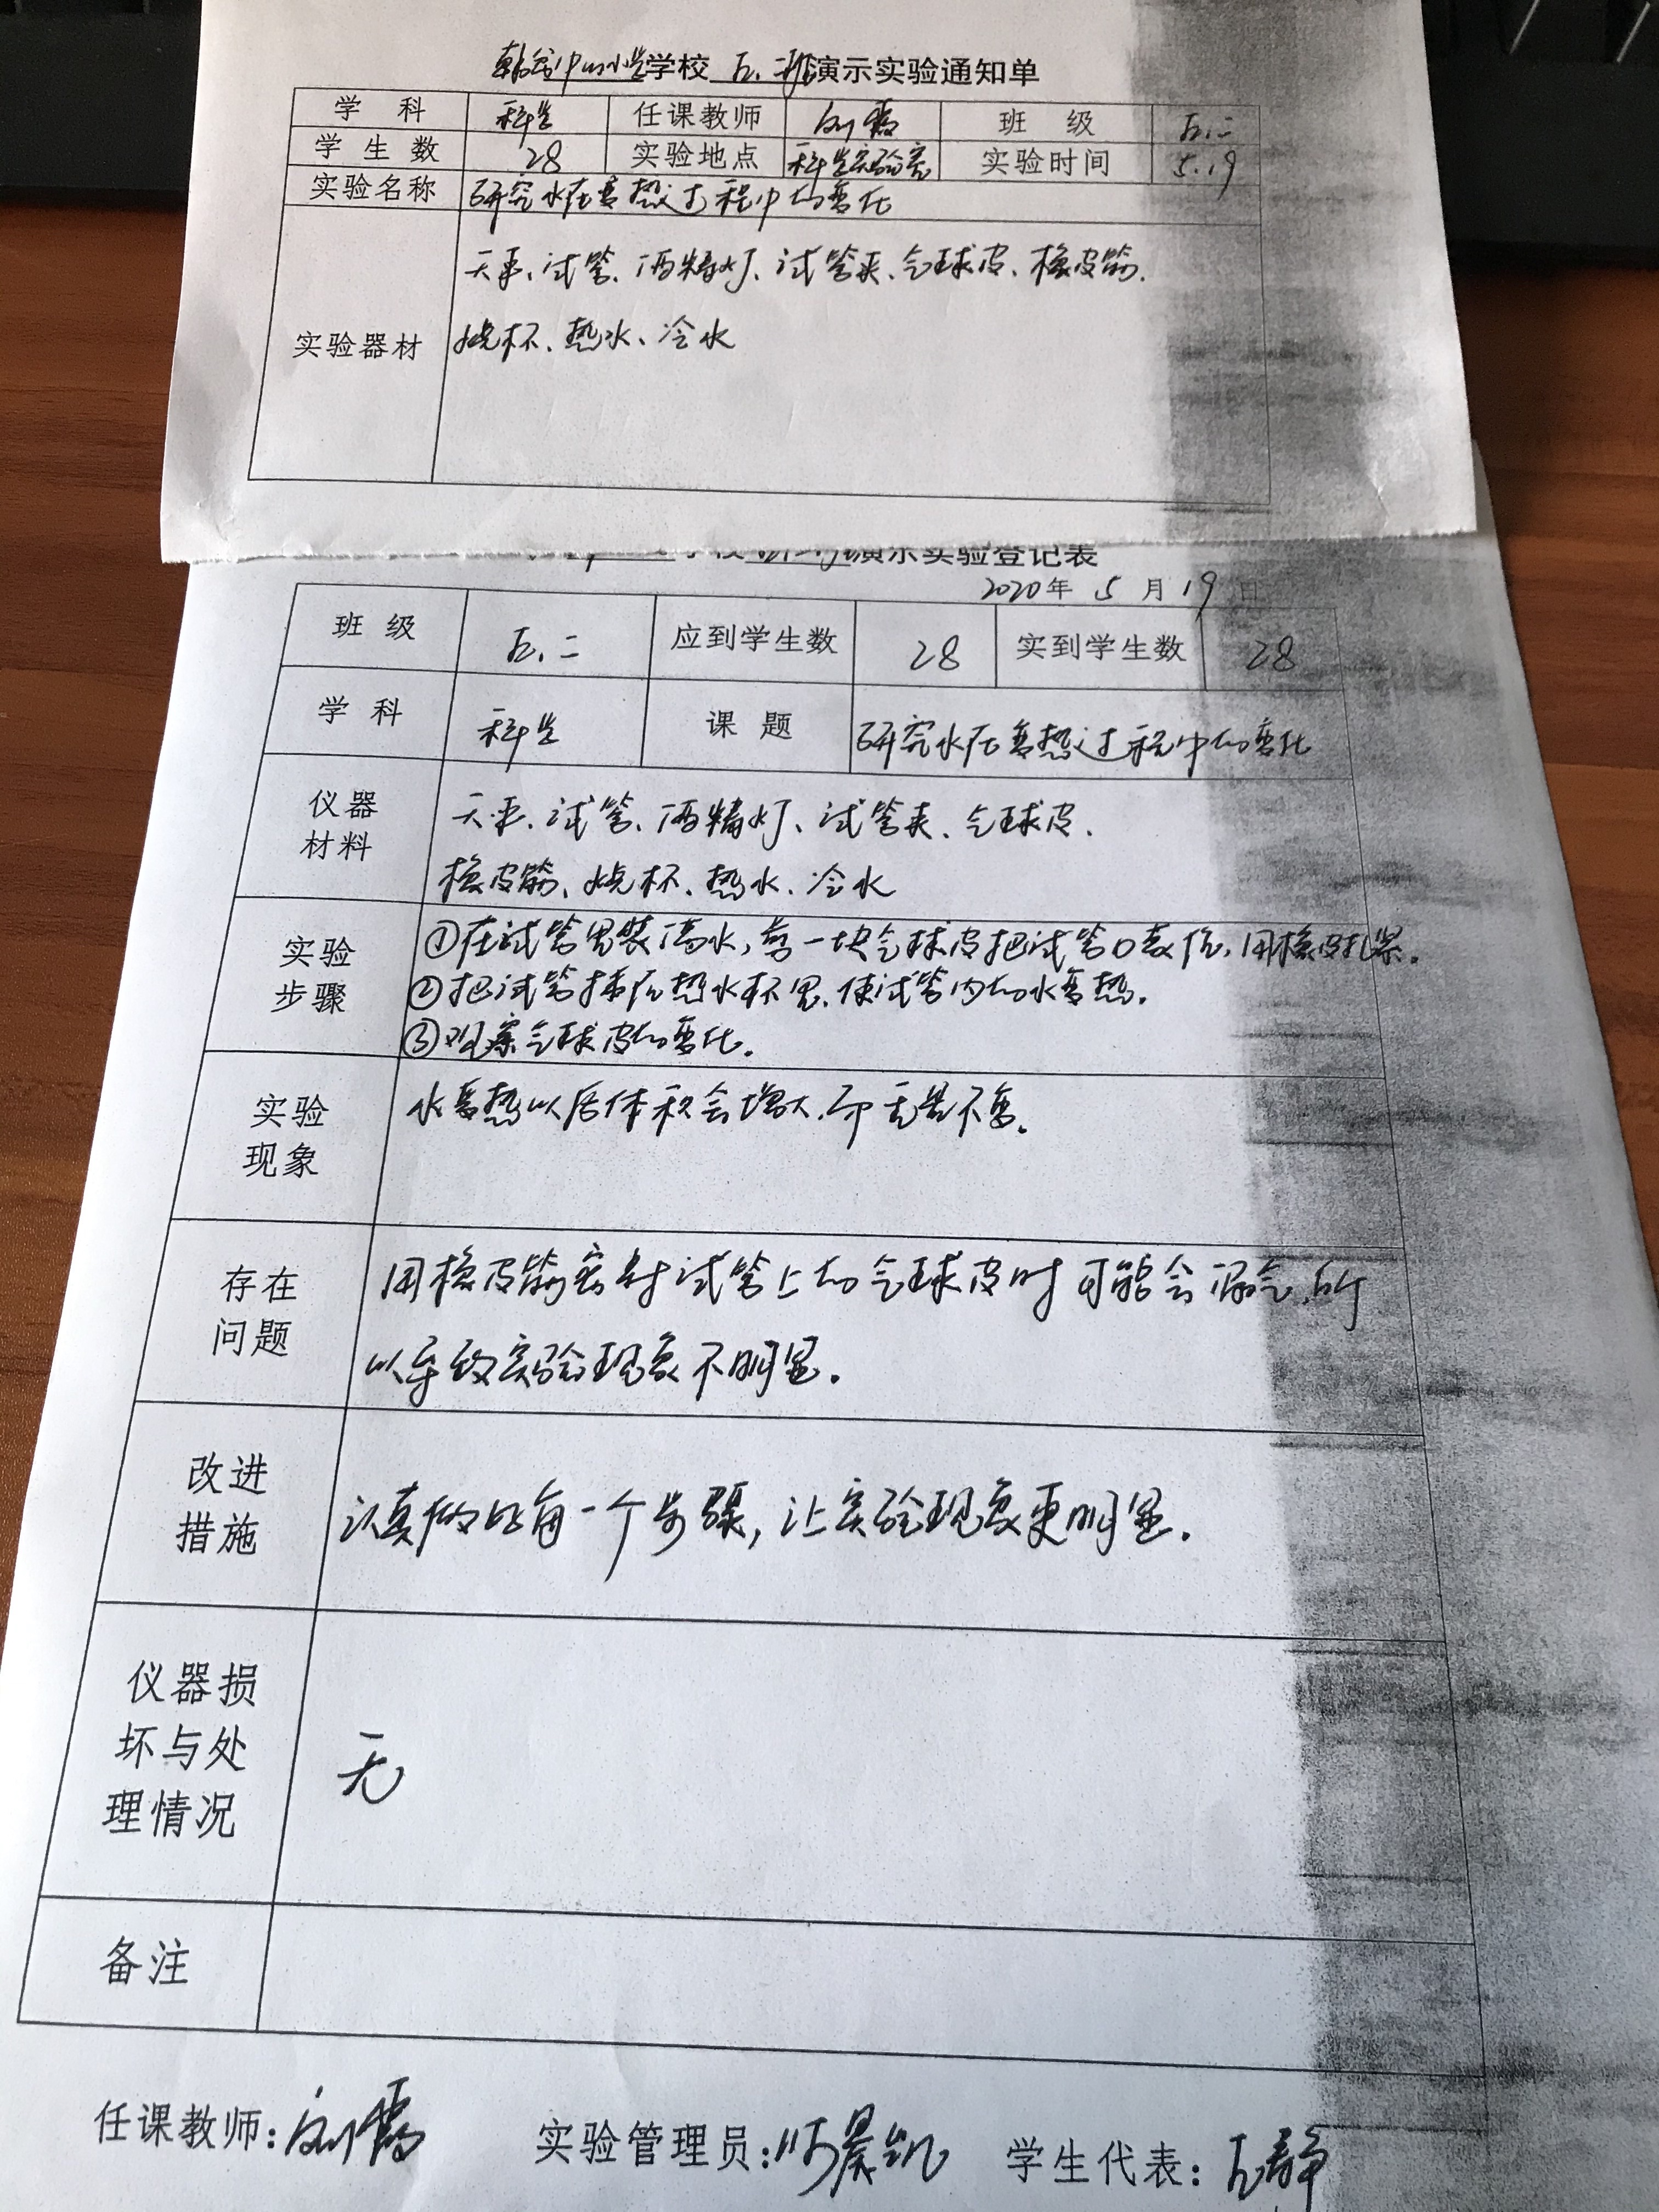 韩店中心小学学校 五.二班演示实验通知单
学 科 科学 任课教师 刘霞 班 级 五.二
学 生 数 28 实验地点 科学实验室 实验时间 5.19
实验名称 研究水在变热过程中的变化
天平、试管、酒精灯、试管夹、气球皮、橡皮筋、
实验器材 烧杯、热水、冷水
演示实验登记表
2020年 5 月 19 日
班 级 五.二 应到学生数 28 实到学生数 28
学 科 科学 课 题 研究水在变热过程中的变化
仪器 天平、试管、酒精灯、试管夹、气球皮、
材料 橡皮筋、烧杯、热水、冷水
实验 ①在试管里装满水,剪一块气球皮把试管口套住,用橡皮扎紧。
步骤 ②把试管插在热水杯里,使试管内的水变热。
③观察气球皮的变化。
实验 水变热以后体积会增大,而重量不变。
现象
存在 用橡皮筋密封试管上的气球皮时可能会漏气,所
问题 以导致实验现象不明显。
改进
措施 认真做好每一个步骤,让实验现象更明显。
仪器损
坏与处 无
理情况
备注
任课教师:刘霞 实验管理员: 学生代表: